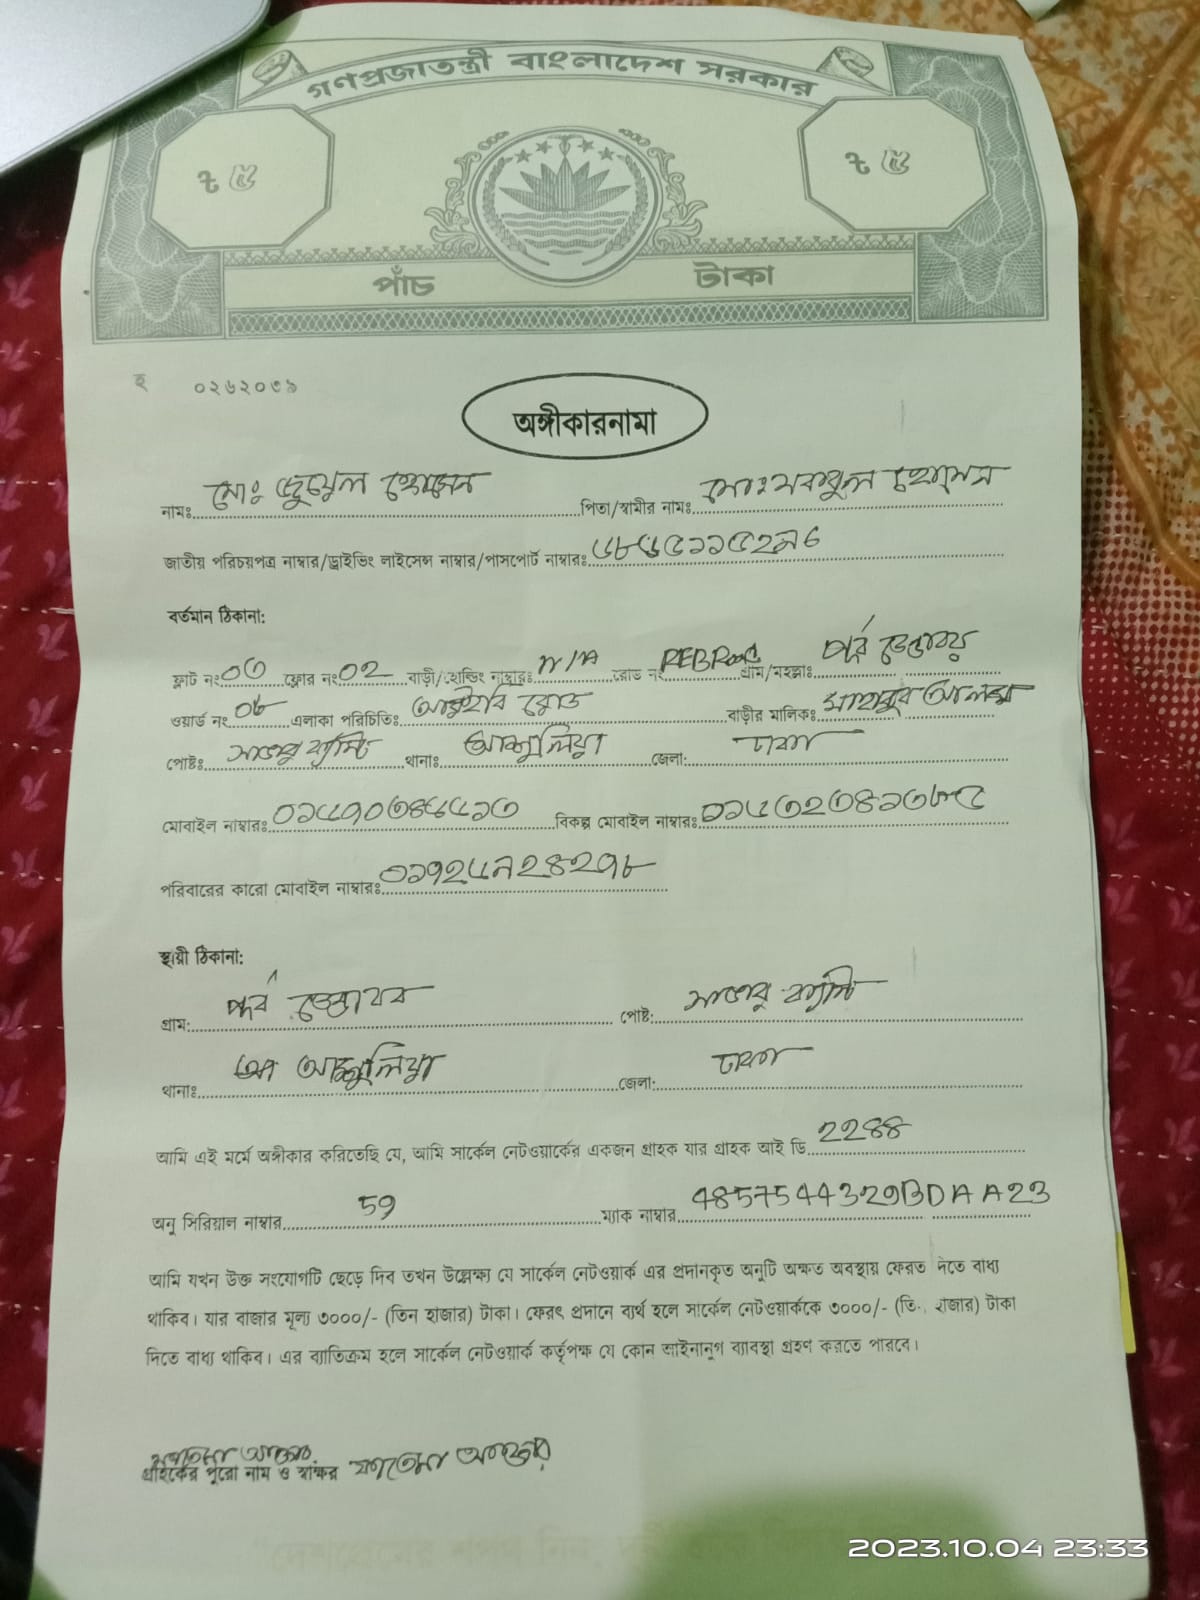 গণপ্রজাতন্ত্রী বাংলাদেশ সরকার
৳ ৫ ৳ ৫
পাঁচ টাকা
হ ০২৬২০৩৯
অঙ্গীকারনামা
নামঃ মোঃ জুয়েল হোসেন পিতা/স্বামীর নামঃ মোঃ মকবুল হোসেন
জাতীয় পরিচয়পত্র নাম্বার/ড্রাইভিং লাইসেন্স নাম্বার/পাসপোর্ট নাম্বারঃ
বর্তমান ঠিকানা:
ফ্লাট নং ০৩ ফ্লোর নং ০২ বাড়ী/হোল্ডিং নাম্বারঃ N/A রোড নং REB Road গ্রাম/মহল্লাঃ
ওয়ার্ড নং ০৮ এলাকা পরিচিতিঃ রোড বাড়ীর মালিকঃ আলম
পোষ্টঃ সাভার ক্যান্ট থানাঃ আশুলিয়া জেলা: ঢাকা
মোবাইল নাম্বারঃ বিকল্প মোবাইল নাম্বারঃ
পরিবারের কারো মোবাইল নাম্বারঃ
স্থায়ী ঠিকানা:
গ্রাম: পোষ্ট: সাভার ক্যান্ট
থানাঃ আশুলিয়া জেলা: ঢাকা
আমি এই মর্মে অঙ্গীকার করিতেছি যে, আমি সার্কেল নেটওয়ার্কের একজন গ্রাহক যার গ্রাহক আই ডি 2288
অনু সিরিয়াল নাম্বার 59 ম্যাক নাম্বার 4857544329BDAA23
আমি যখন উক্ত সংযোগটি ছেড়ে দিব তখন উল্লেক্ষ্য যে সার্কেল নেটওয়ার্ক এর প্রদানকৃত অনুটি অক্ষত অবস্থায় ফেরত দিতে বাধ্য
থাকিব। যার বাজার মূল্য ৩০০০/- (তিন হাজার) টাকা। ফেরৎ প্রদানে ব্যর্থ হলে সার্কেল নেটওয়ার্ককে ৩০০০/- (তি হাজার) টাকা
দিতে বাধ্য থাকিব। এর ব্যাতিক্রম হলে সার্কেল নেটওয়ার্ক কর্তৃপক্ষ যে কোন আইনানুগ ব্যাবস্থা গ্রহণ করতে পারবে।
গ্রাহকের পুরো নাম ও স্বাক্ষর ফাতেমা আক্তার
2023.10.04 23:33